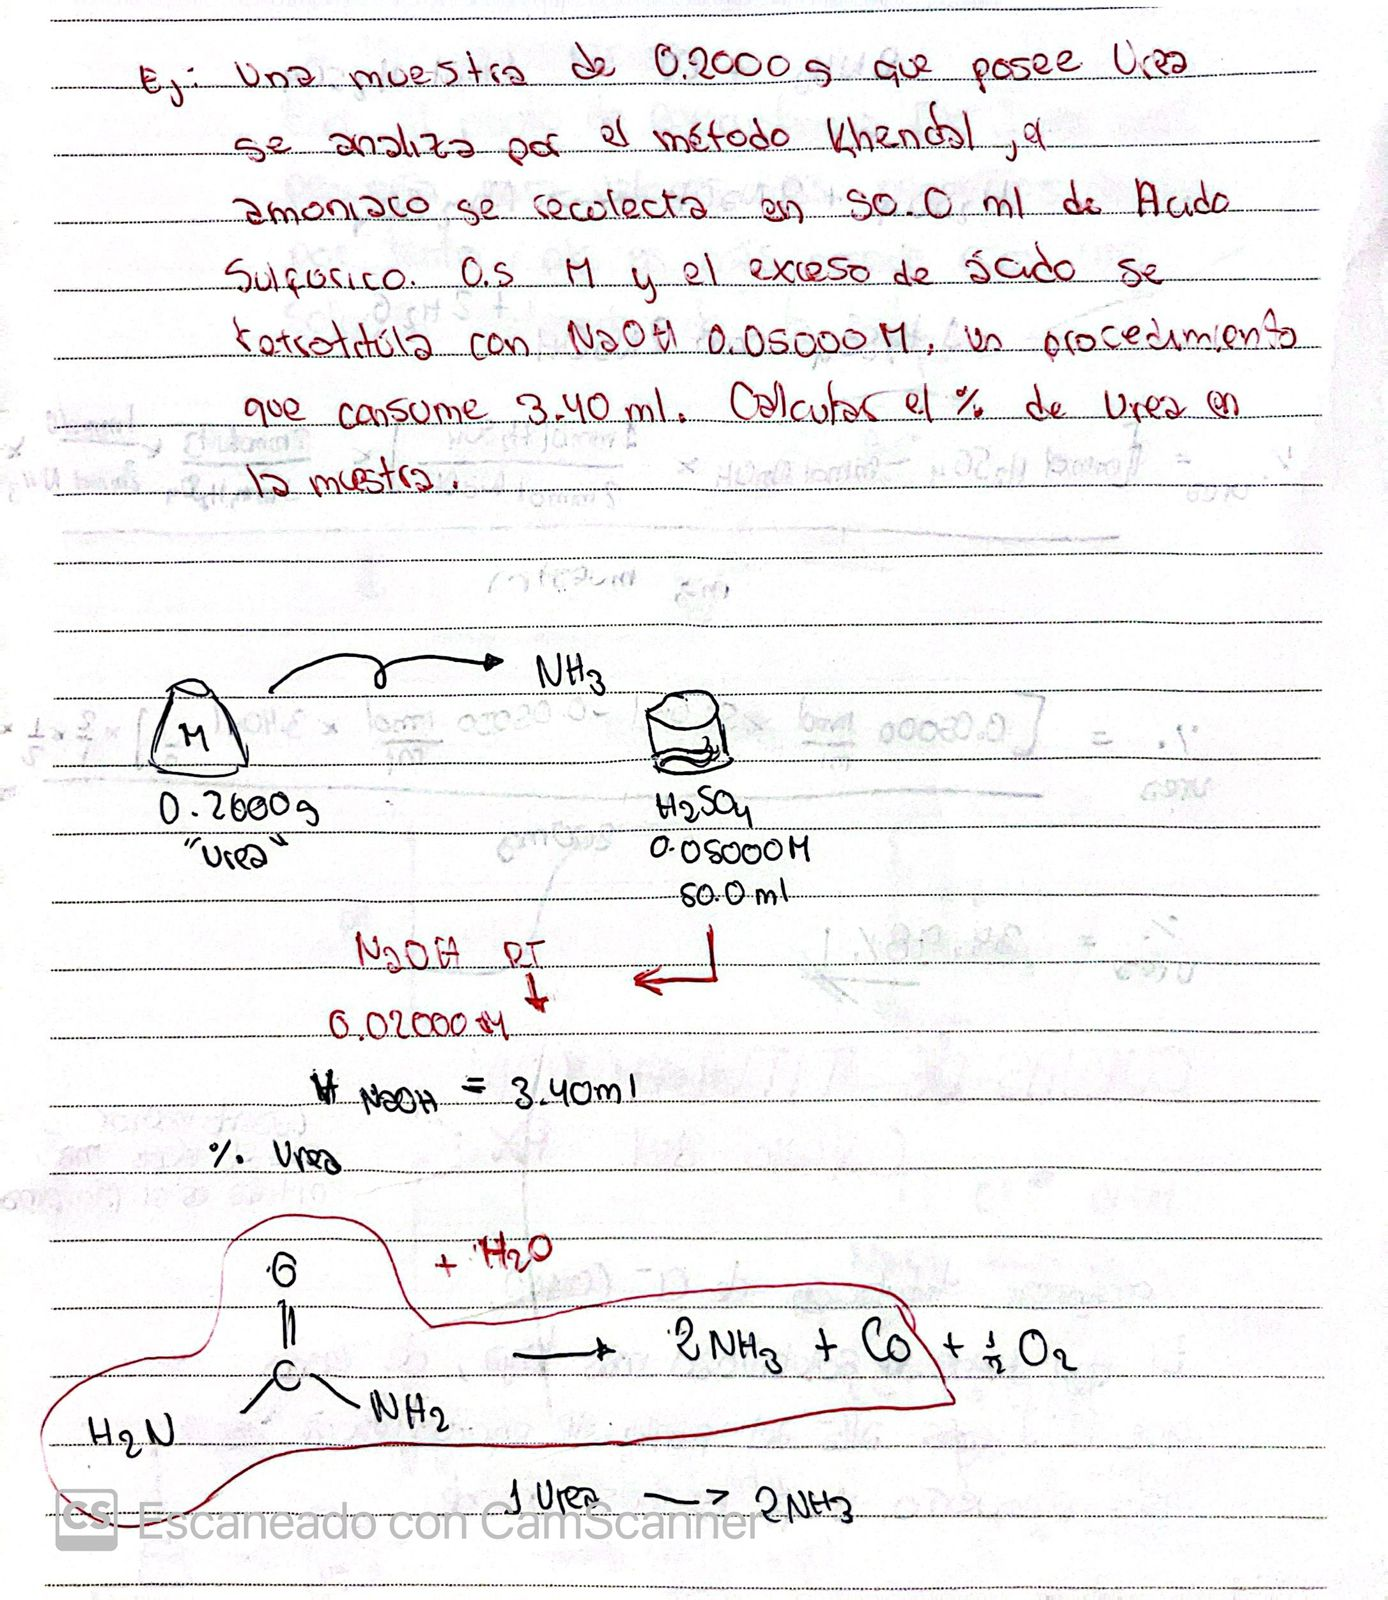 Ej: Una muestra de 0.2000 g que posee Urea
se analiza por el método Khendal, el
amoniaco se recolecta en 50.0 ml de Acido
Sulfúrico. 0.5 M y el exceso de ácido se
retrotitúla con NaOH 0.05000M, un procedimiento
que consume 3.40 ml. Calcular el % de Urea en
la muestra.
NH3
M
0.2000g
"Urea"
H2SO4
0.05000M
50.0 ml
NaOH RT
0.02000 M
V NaOH = 3.40ml
% Urea
O
+ H2O
C
H2N
NH2
2NH3 + CO + 1/2 O2
1 Urea → 2NH3
CS Escaneado con CamScanner